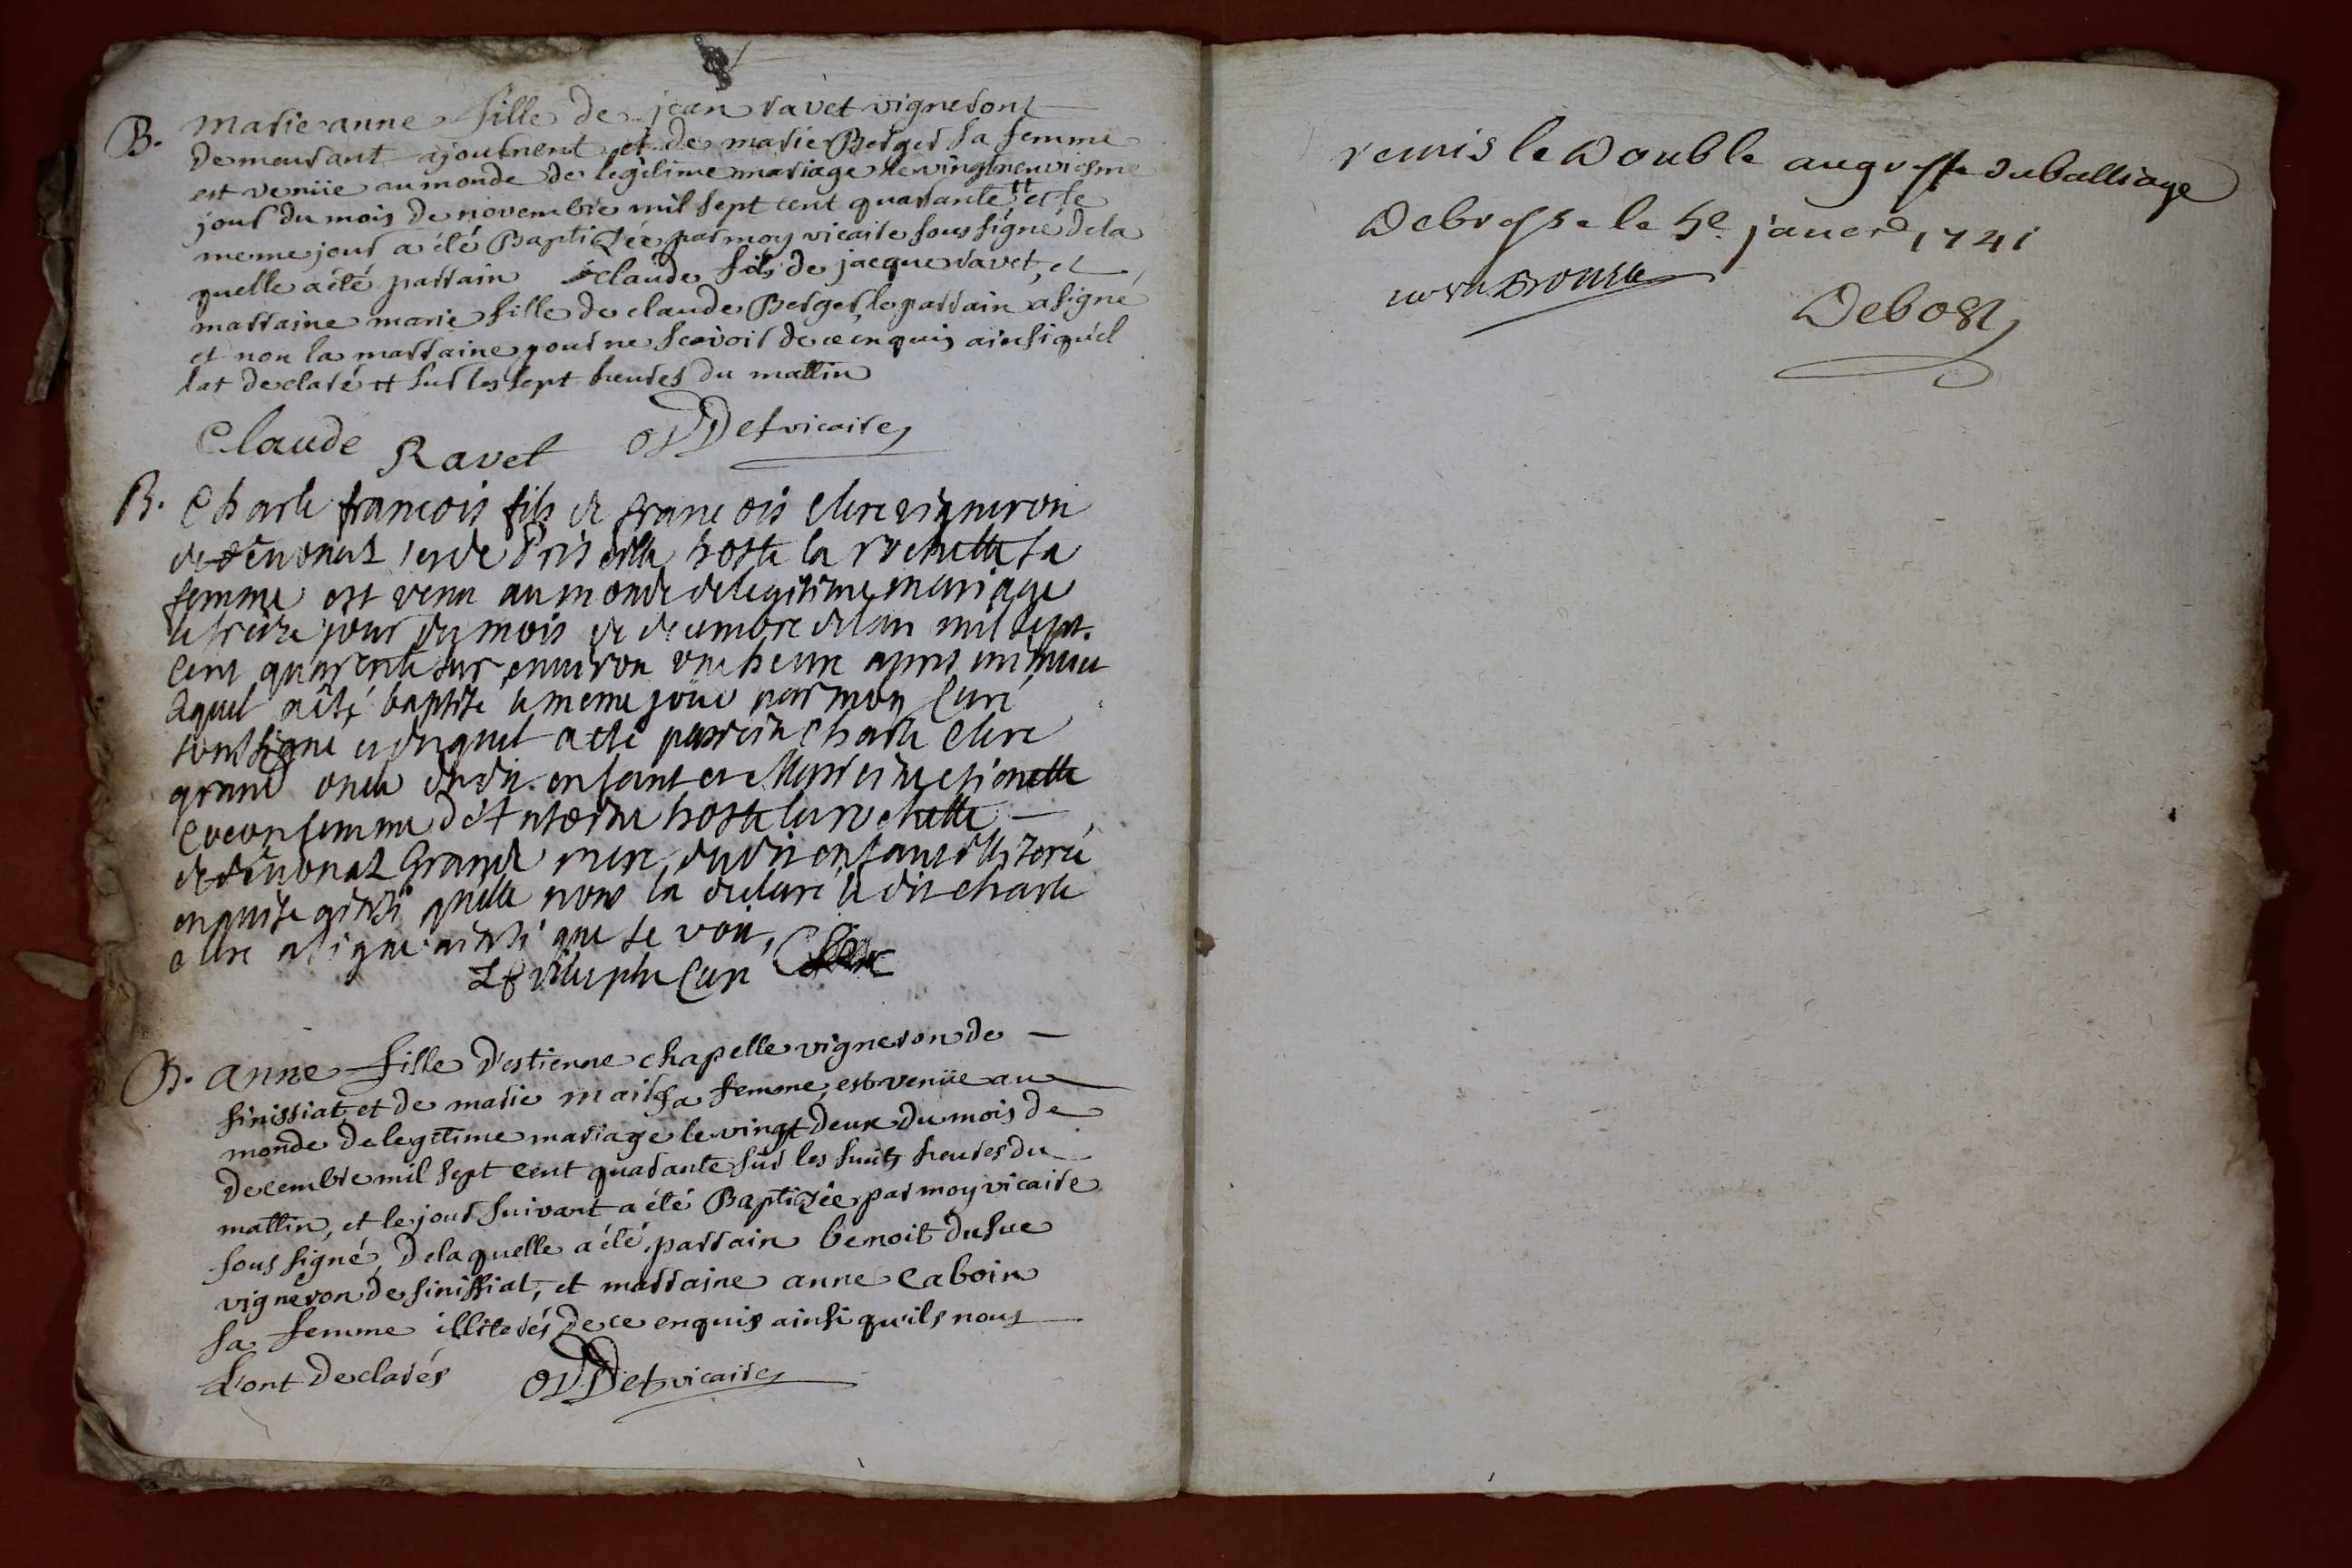 B. Marie anne fille de jean ravet vigneront
demeurant a journent et de marie Berger sa femme
est venüe au monde de legitime mariage le vingtneuviesme
jour du mois de novembre mil sept cent quarante ++ et le
meme jour a été Baptizée par moy vicaire sous signé de la
quelle a été parrain claude fils de jacque ravet, et
marraine marie fille de claude Berger, le parrain a signé
et non la marraine pour ne scavoir de ce enquis ainsi qu'el
lat declaré ++ sur les sept heures du mattin
Claude Ravet vicaire
B. Charle francois fils de francois clere vigneron
de et de hoste la rochette sa
femme est venu au monde de legitime mariage
le treize jour du mois de decembre de lan mil sept
cent quarente sur environ une heure apres minuit
lequel a été baptisé le meme jour par moy curé
soussigné et duquel a été parrein Charle clere
grand oncle dudit enfant et Marreine
femme d' hoste la rochette
de grande mere dudit enfant illiterée
enquise ainsi quelle nous la declaré le dit charle
clere a signé ainsi que se voit,
curé Clere
B. Anne fille d'estienne chapelle vigneron de
sinissiat et de marie mait sa femme, est venüe au
monde de legitime mariage le vingt deux du mois de
decembre mil sept cent quarante sur les huits heures du
mattin, et le jour suivant a été Baptizée par moy vicaire
sous signé, de laquelle a été parrain benoit dufue
vigneron de sinissiat, et marraine anne caboin
sa femme illiterés de ce enquis ainsi qu'ils nous
l'ont declarés vicaire
remis le Double au greffe du balliage
De bresse le 5e janer 1741
Debost